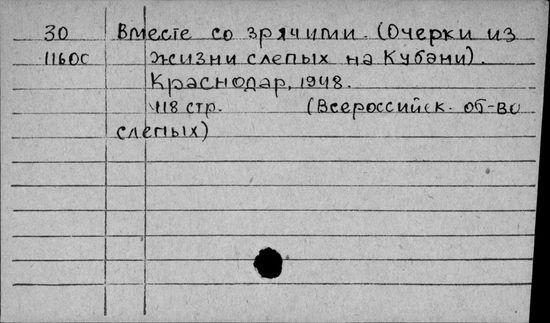 30 Вместе со зрячими. (Очерки из
1160с жизни слепых на Кубани).
Краснодар, 1948.
118 стр. (Всероссийск. об-во
слепых)